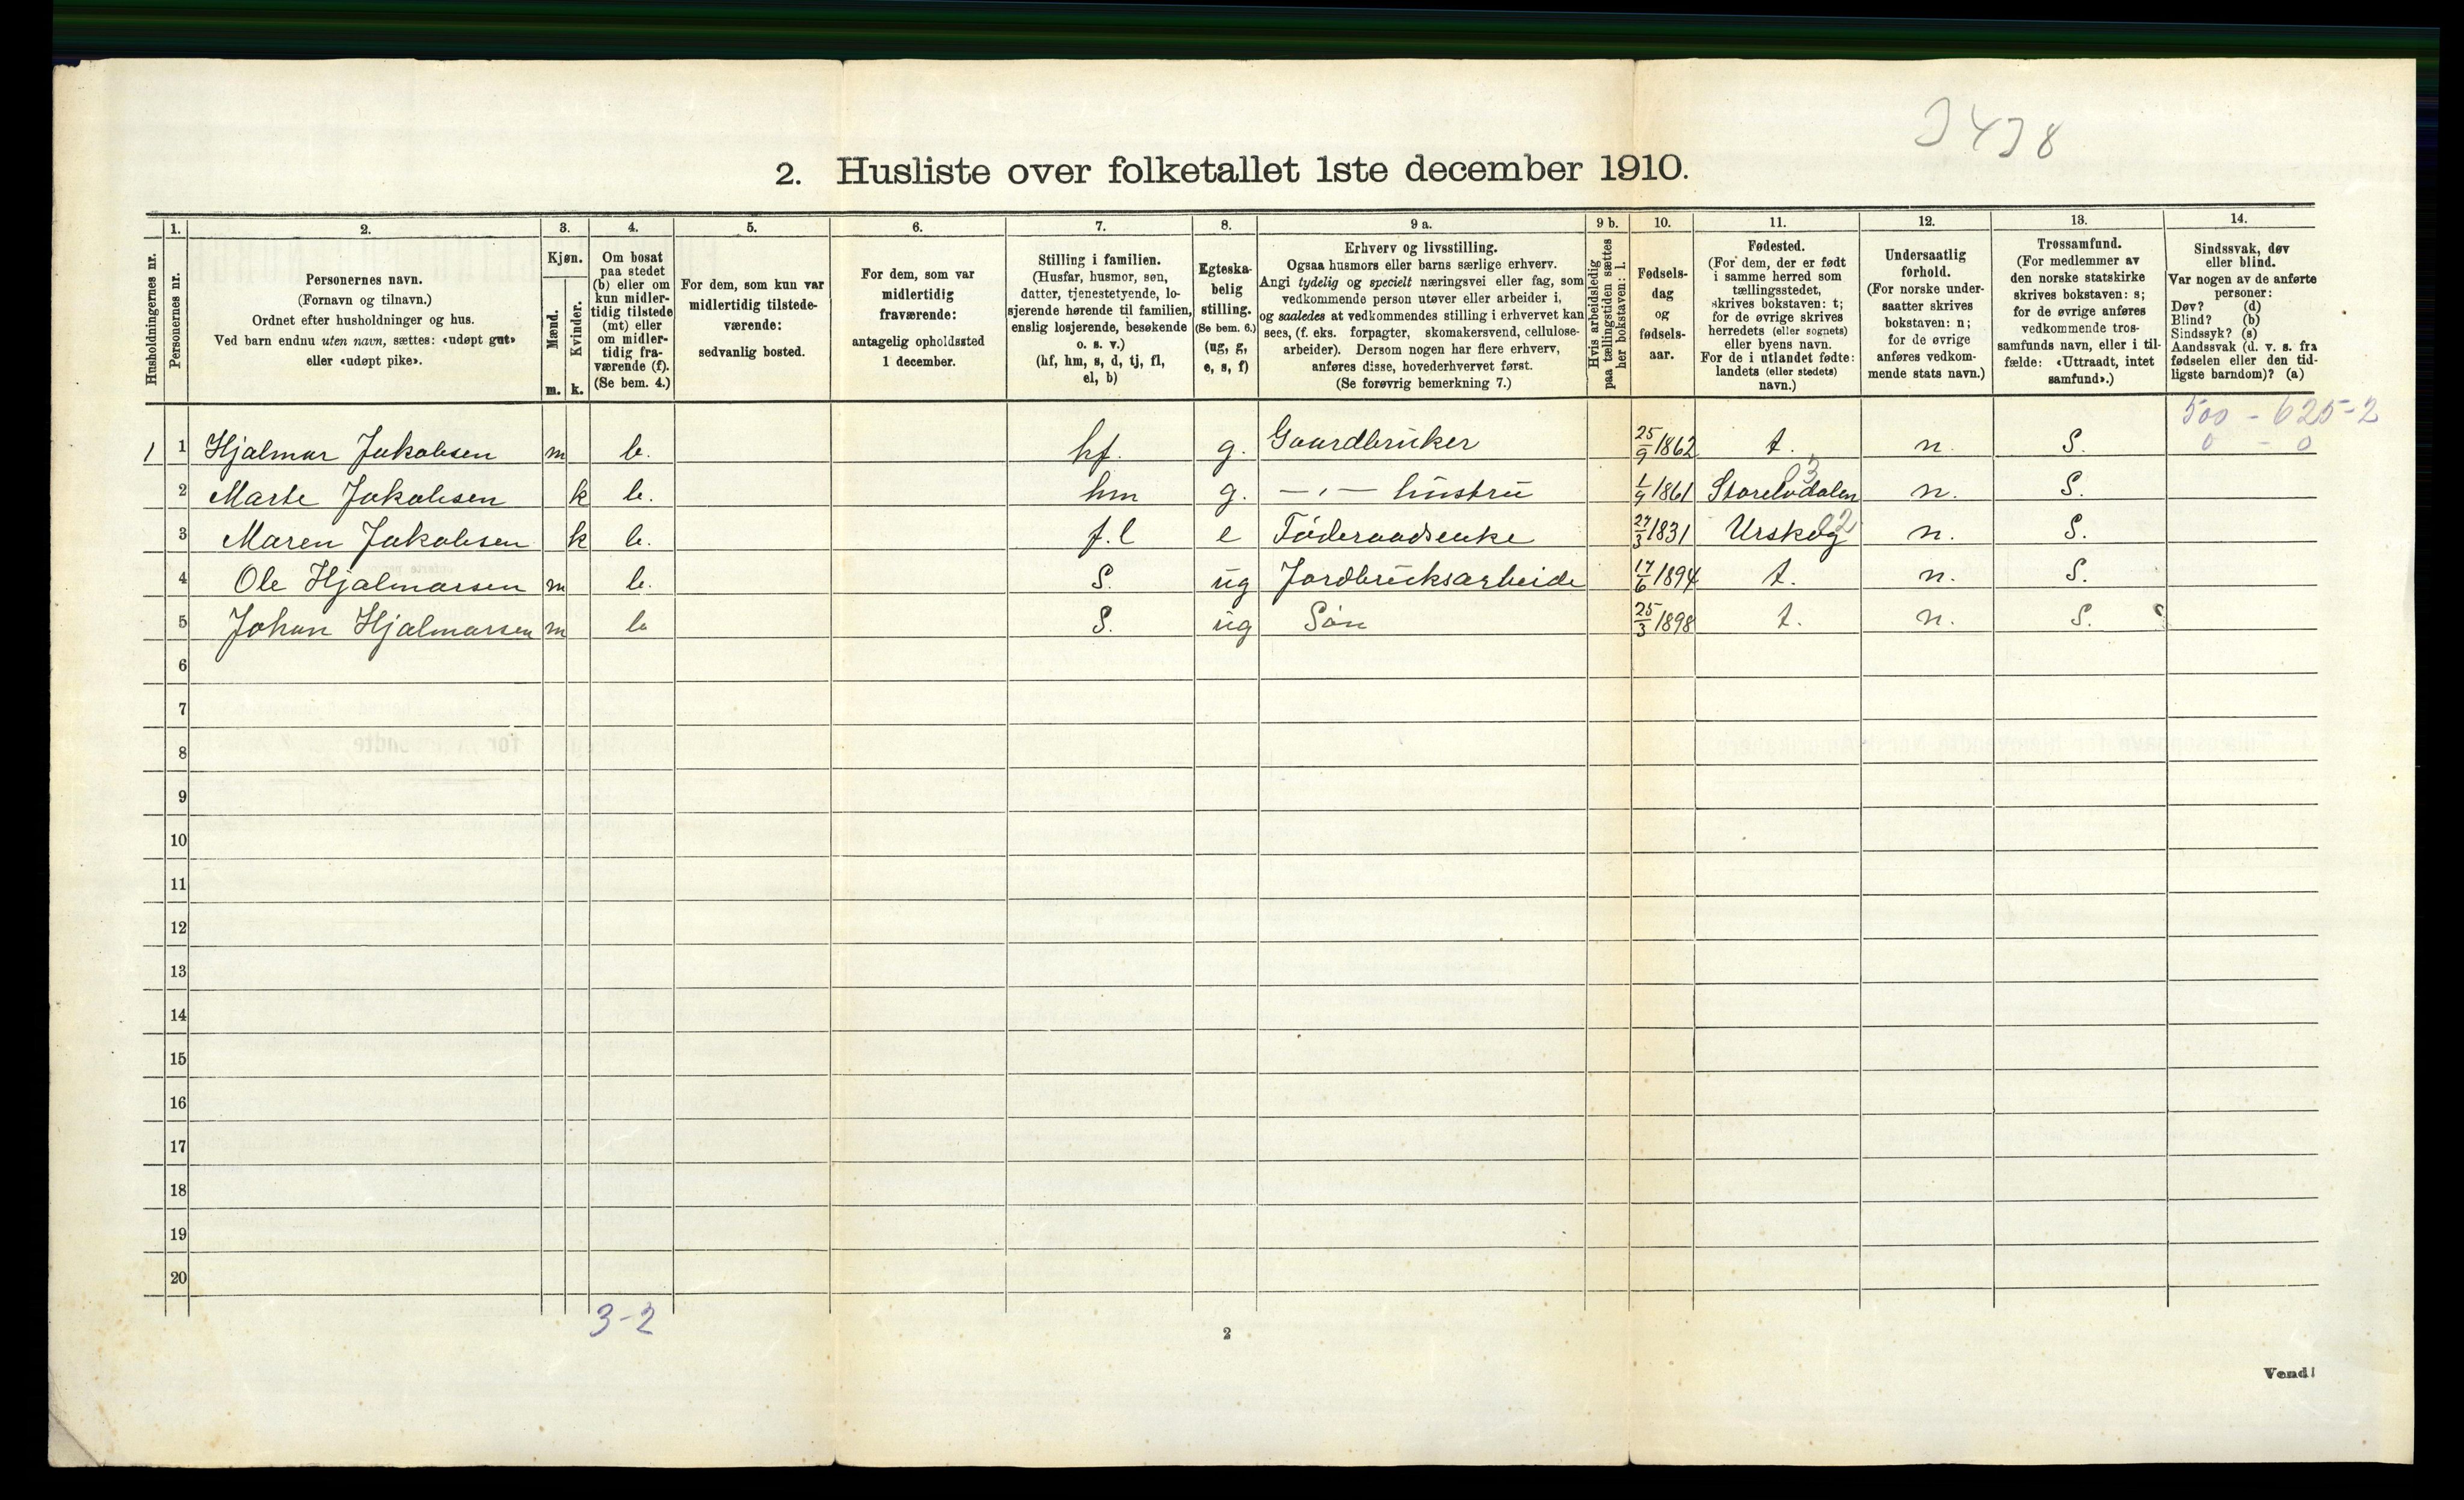 J4J8
2. Husliste over folketallet 1ste december 1910.
Husholdningernes nr.
1.
Personernes nr.
2.
Personernes navn.
(Fornavn og tilnavn.)
Ordnet efter husholdninger og hus.
Ved barn endnu uten navn, sættes: «udøpt gut»
eller «udøpt pike».
3.
Kjøn.
Mænd.
m.
Kvinder.
k.
4.
Om bosat
paa stedet
(b) eller om
kun midler-
tidig tilstede
(mt) eller
om midler-
tidig fra-
værende (f).
(Se bem. 4.)
5.
For dem, som kun var
midlertidig tilstede-
værende:
sedvanlig bosted.
6.
For dem, som var
midlertidig
fraværende:
antagelig opholdssted
1 december.
7.
Stilling i familien.
(Husfar, husmor, søn,
datter, tjenestetyende, lo-
sjerende hørende til familien,
enslig losjerende, besøkende
o. s. v.)
(hf, hm, s, d, tj, fl,
el, b)
8.
Egteska-
belig
stilling.
(Se bem. 6.)
(ug, g,
e, s, f)
9 a.
Erhverv og livsstilling.
Ogsaa husmors eller barns særlige erhverv.
Angi tydelig og specielt næringsvei eller fag, som
vedkommende person utøver eller arbeider i,
og saaledes at vedkommendes stilling i erhvervet kan
sees, (f. eks. forpagter, skomakersvend, cellulose-
arbeider). Dersom nogen har flere erhverv,
anføres disse, hovederhvervet først.
(Se forøvrig bemerkning 7.)
9 b.
Hvis arbeidsledig
paa tællingstiden sættes
her bokstaven: l.
10.
Fødsels-
dag
og
fødsels-
aar.
11.
Fødested.
(For dem, der er født
i samme herred som
tællingsstedet,
skrives bokstaven: t;
for de øvrige skrives
herredets (eller sognets)
eller byens navn.
For de i utlandet fødte:
landets (eller stedets)
navn.)
12.
Undersaatlig
forhold.
(For norske under-
saatter skrives
bokstaven: n;
for de øvrige
anføres vedkom-
mende stats navn.)
13.
Trossamfund.
(For medlemmer av
den norske statskirke
skrives bokstaven: s;
for de øvrige anføres
vedkommende tros-
samfunds navn, eller i til-
fælde: «Uttraadt, intet
samfund».)
14.
Sindssvak, døv
eller blind.
Var nogen av de anførte
personer:
Døv? (d)
Blind? (b)
Sindssyk? (s)
Aandssvak (d. v. s. fra
fødselen eller den tid-
ligste barndom)? (a)
500 - 625-2
0 - 0
1 1 Hjalmar Jakobsen m b. hf. g. Gaardbruker 25/9 1862 t. n. S.
03
2 Marte Jakobsen k b. hm g. —„— hustru 1/9 1861 Storelvdalen n. S.
3 Maren Jakobsen k b. f.l e Föderaadsenke 27/3 1831 Urskog 02 n. S.
4 Ole Hjalmarsen m b. S. ug Jordbruksarbeide 17/6 1894 t. n. S.
5 Johan Hjalmarsen m b S. ug Sön 25/3 1898 t. n. S.
6
7
8
9
10
11
12
13
14
15
16
17
18
19
20
3-2
2
Vend!